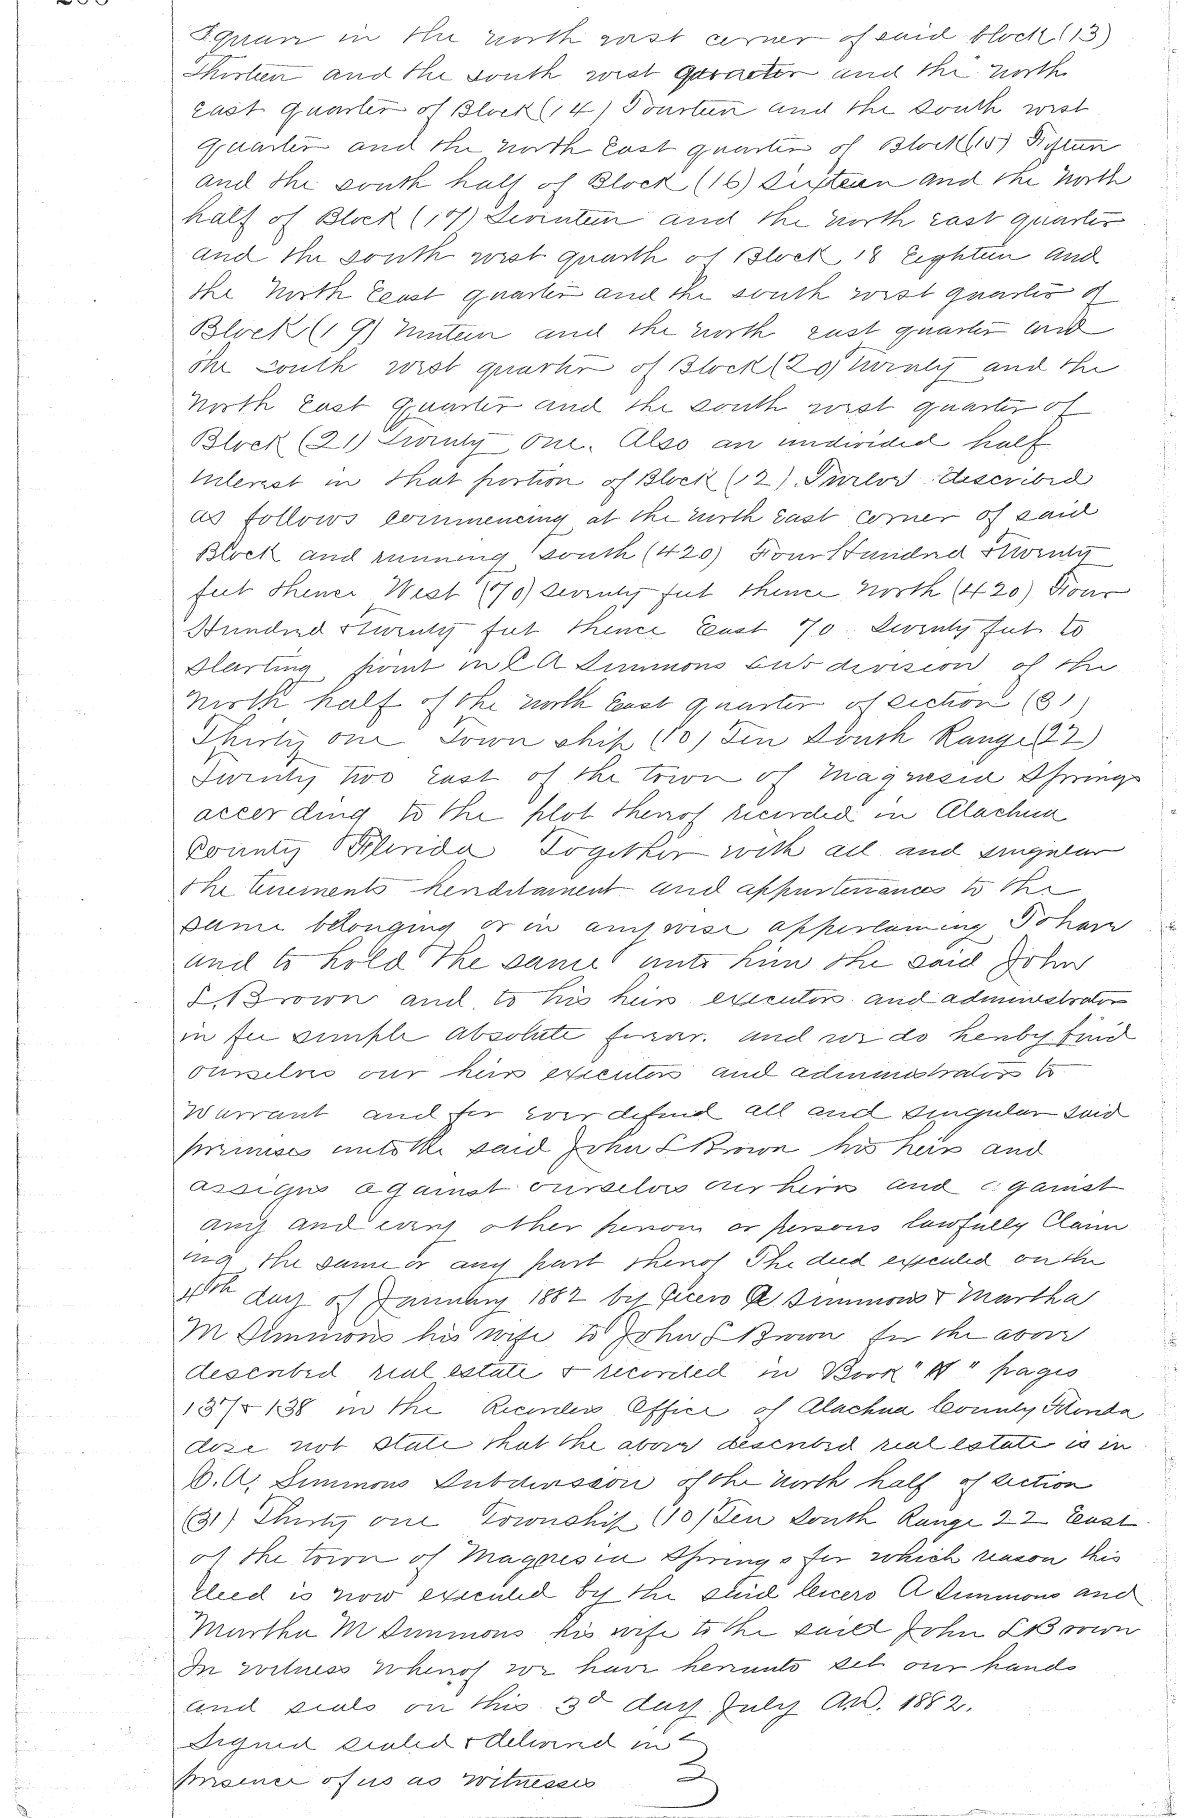 Square in the north east corner of said block (13)
Thirteen and the south west quarter and the north
east quarter of Block (14) Fourteen and the south west
quarter and the north East quarter of Block (15) Fifteen
and the south half of Block (16) Sixteen and the North
half of Block (17) Seventeen and the north east quarter
and the south west quarth of Block 18 Eighteen and
the North East quarter and the south west quarter of
Block (19) Ninteen and the north east quarter and
the south west quarter of Block (20) Twenty and the
North East Quarter and the south west quarter of
Block (21) Twenty one. Also an undivided half
Interest in that portion of Block (12) Twelve described
as follows commencing at the north east corner of said
Block and running south (420) Four Hundred & twenty
feet thence West (70) Seventy feet thence North (420) Four
Hundred & twenty feet thence East 70 Seventy feet to
starting point in C A Simmons sub division of the
North half of the north East quarter of section (31)
Thirty one Town ship (10) Ten South Range (22)
Twenty two East of the town of Magnesia Springs
according to the plot thereof recorded in Alachua
County Florida Together with all and singular
the tenements hereditament and appurtenances to the
same belonging or in anywise appertaining To have
and to hold the same unto him the said John
S. Brown and to his heirs executors and administrators
in fee simple absolute forever. and we do hereby bind
ourselves our heirs executors and administrators to
Warrant and for ever defend all and singular said
premises unto the said John S Brown his heirs and
assigns against ourselves our heirs and against
any and every other person or persons lawfully Claim
ing the same or any part thereof The deed executed on the
4th day of January 1882 by Cicero A Simmons & Martha
M Simmons his wife to John S Brown for the above
described real estate & recorded in Book " " pages
137 & 138 in the Recorders Office of Alachua County Florida
dose not state that the above described real estate is in
C. A. Simmons Subdivission of the North half of section
(31) Thirty one Township (10) Ten South Range 22 East
of the town of Magnesia Springs for which reason this
deed is now executed by the said Cicero A Simmons and
Martha M Simmons his wife to the said John S Brown
In witness Whereof we have hereunto set our hands
and seals on this 3d day July A.D. 1882.
Signed sealed & delivered in
presence of us as witnesses